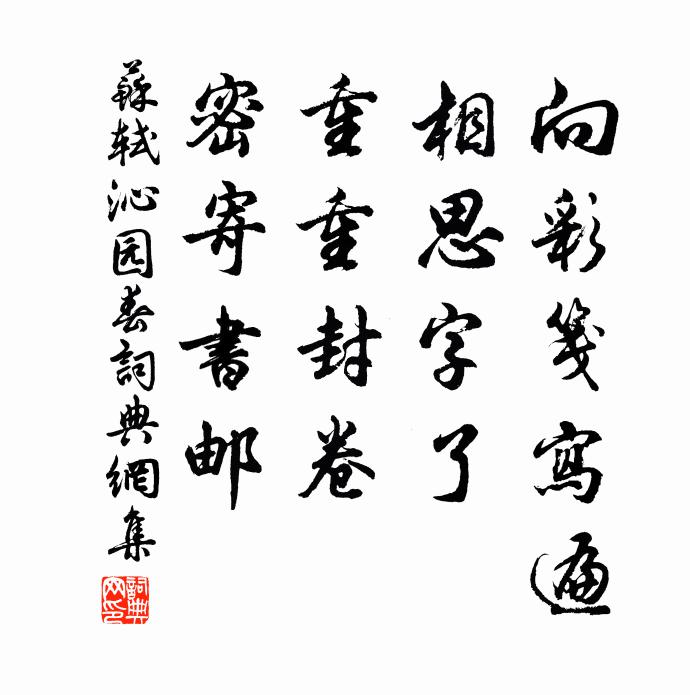 向彩箋寫遍
相思字了
重重封卷
密寄書邮
蘇軾沁园春詞典網集
詞典網印